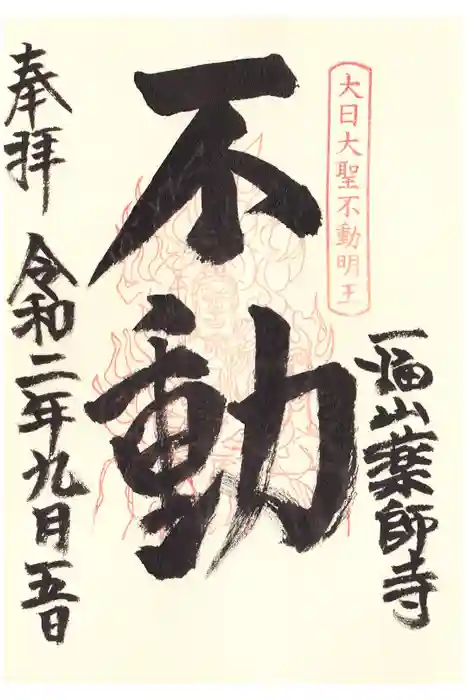 一畑山薬師寺
大日大聖不動明王
不動
奉拝 令和二年九月五日